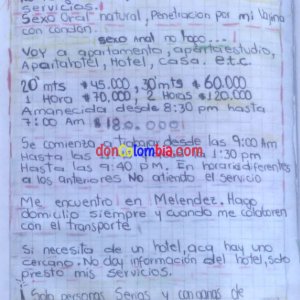 servicios.!
Sexo Oral natural, Penetracion por mi Vagina
con condon.
sexo anal no hago...!
Voy a apartamento, apartaestudio,
Apartahotel, Hotel, casa. etc.
20 mts $45.000, 30 mts $60.000
1 Hora $70.000, 2 Horas $120.000
Amanecida desde 8:30 pm hasta
7:00 Am $180.000!
Se comienza a trabajar desde las 9:00 Am
Hasta las 1:30 pm
doncolombia.com
Hasta las 9:40 p.m. En horarios diferentes
a los anteriores No atiendo el servicio
Me encuentro en Melendez. Hago
domicilio siempre y cuando me colaboren
con el transporte
Si necesita de un hotel, aca hay uno
cercano. No doy información del hotel, solo
presto mis servicios.
¡Solo personas Serias y con ganas de